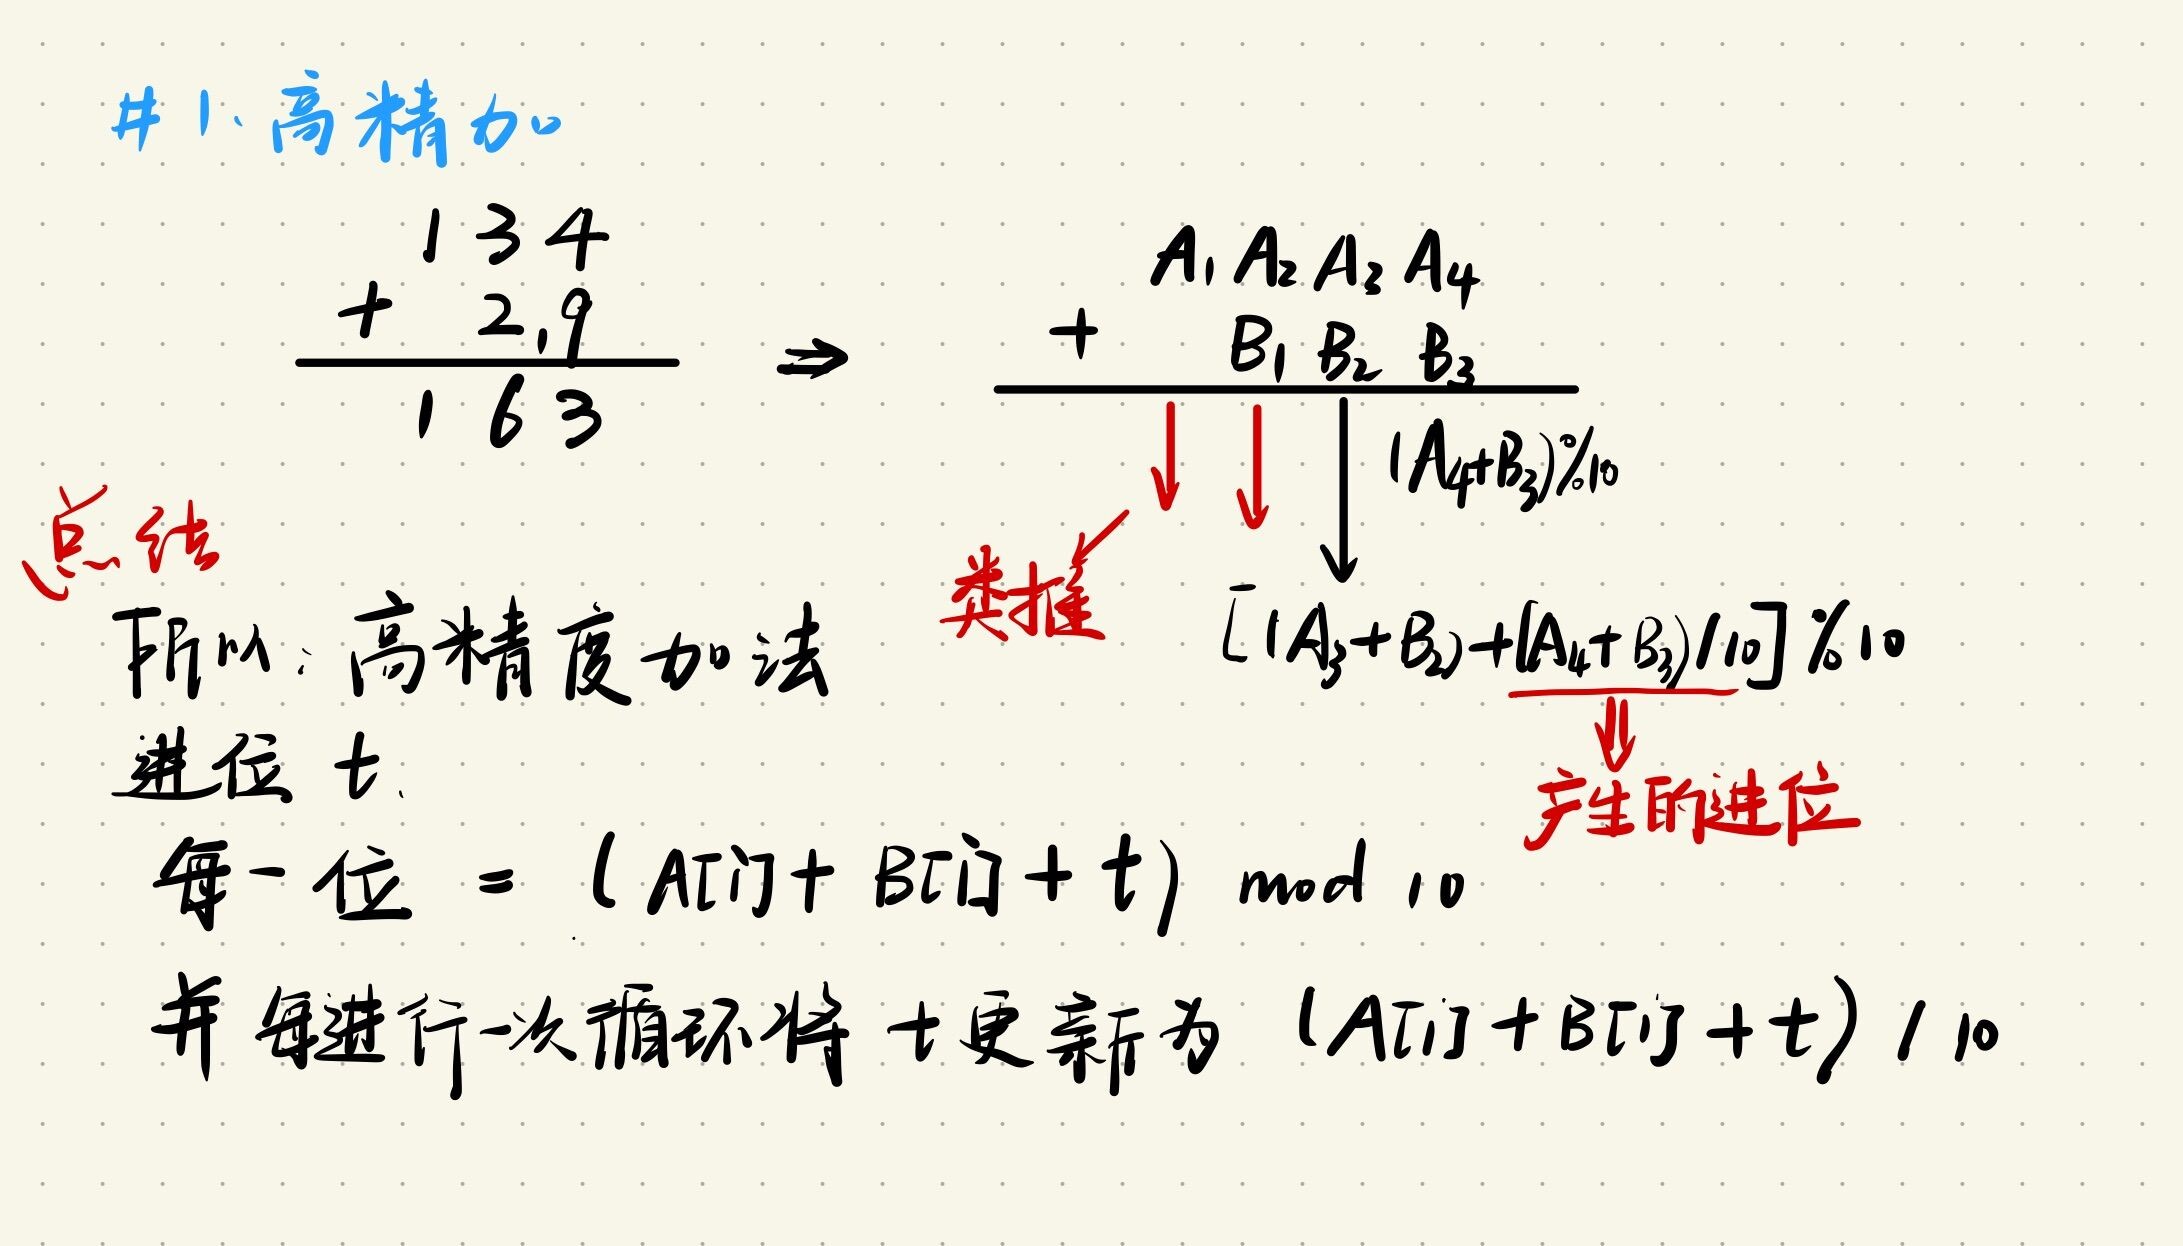 # 1. 高精加
134
+ 2,9
163
⇒
A₁ A₂ A₃ A₄
+ B₁ B₂ B₃
(A₄+B₃)%10
类推
[(A₃+B₂)+(A₄+B₃)/10]%10
产生的进位
总结
所以: 高精度加法
进位 t.
每一位 = (A[i] + B[i] + t) mod 10
并每进行一次循环将 t 更新为 (A[i] + B[i] + t) / 10